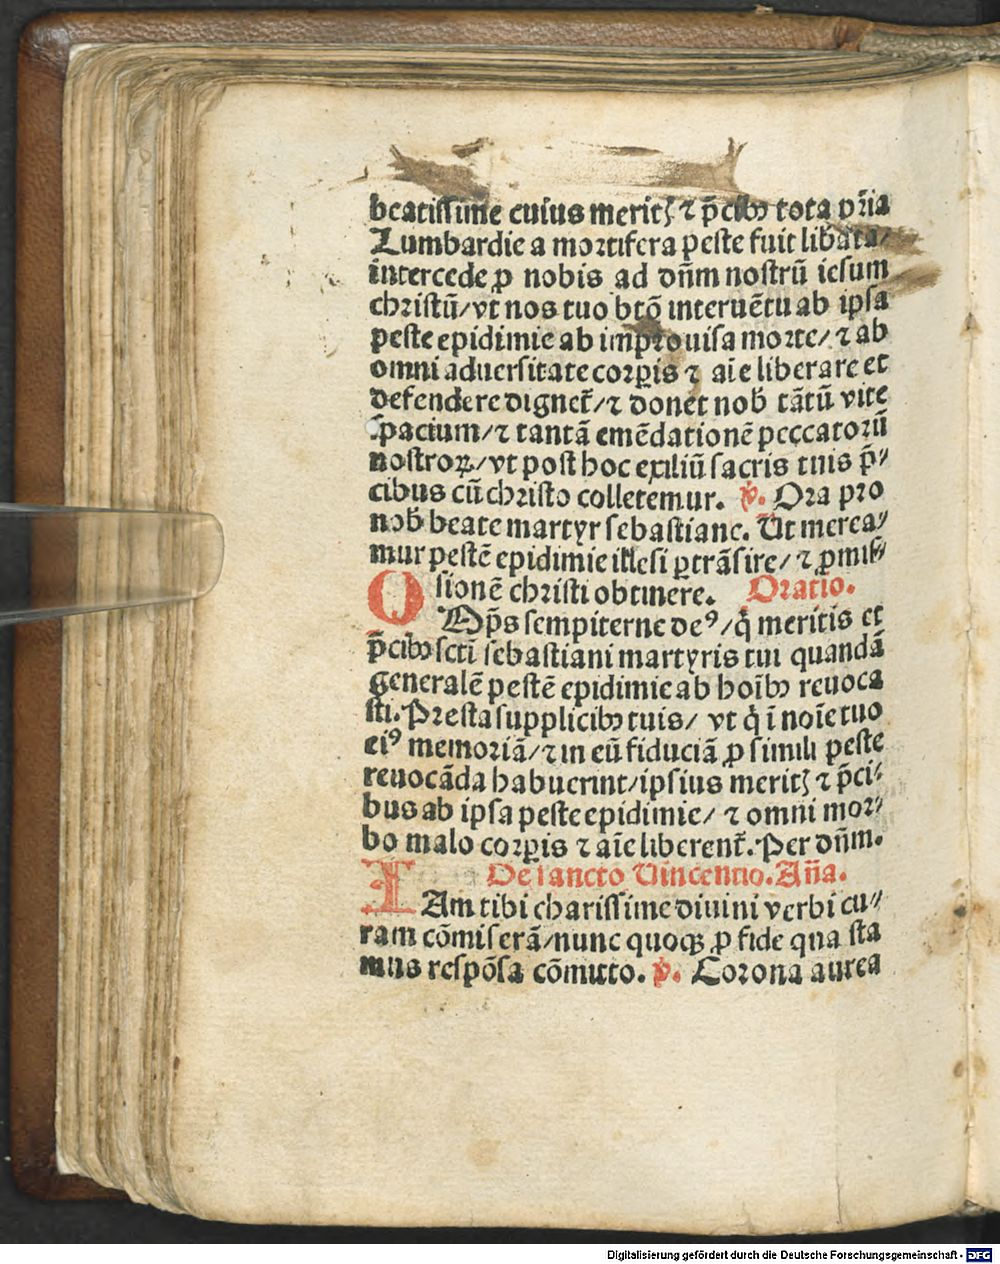 beatissime cuius meritꝭ ⁊ p̄cibꝫ tota pr̄ia
Lumbardie a mortifera peste fuit libata/
intercede ꝓ nobis ad dn̄m nostrū iesum
christū/vt nos tuo btō interuētu ab ipsa
peste epidimie ab improuisa morte/⁊ ab
omni aduersitate corꝑis ⁊ aīe liberare et
defendere dignet᷑/⁊ donet nob̄ tātū vite
spacium/⁊ tantā emēdationē peccatorū
nostroꝝ/vt post hoc exiliū sacris tuis p̄⸗
cibus cū christo colletemur. ℣. Ora pro
nob̄ beate martyr sebastiane. Vt merea⸗
mur pestē epidimie illesi ꝑtrāsire/⁊ ꝓmis⸗
sionē christi obtinere. Oratio.
OMp̄s sempiterne deꝰ/q̇ meritis et
p̄cibꝫ scti sebastiani martyris tui quandā
generalē pestē epidimie ab hoībꝫ reuoca
sti. Presta supplicibꝫ tuis/ vt q̇ ī noīe tuo
eiꝰ memoriā/⁊ in eū fiduciā ꝓ simili peste
reuocāda habuerint/ipsius meritꝭ ⁊ p̄ci⸗
bus ab ipsa peste epidimie/ ⁊ omni mor⸗
bo malo corꝑis ⁊ aīe liberent᷑. Per dn̄m.
De sancto Vincentio. Añа.
IAm tibi charissime diuini verbi cu⸗
ram cōmiserā/nunc quoqꝫ ꝓ fide qua sta
mus respōsa cōmitto. ℣. Corona aurea
Digitalisierung gefördert durch die Deutsche Forschungsgemeinschaft - DFG